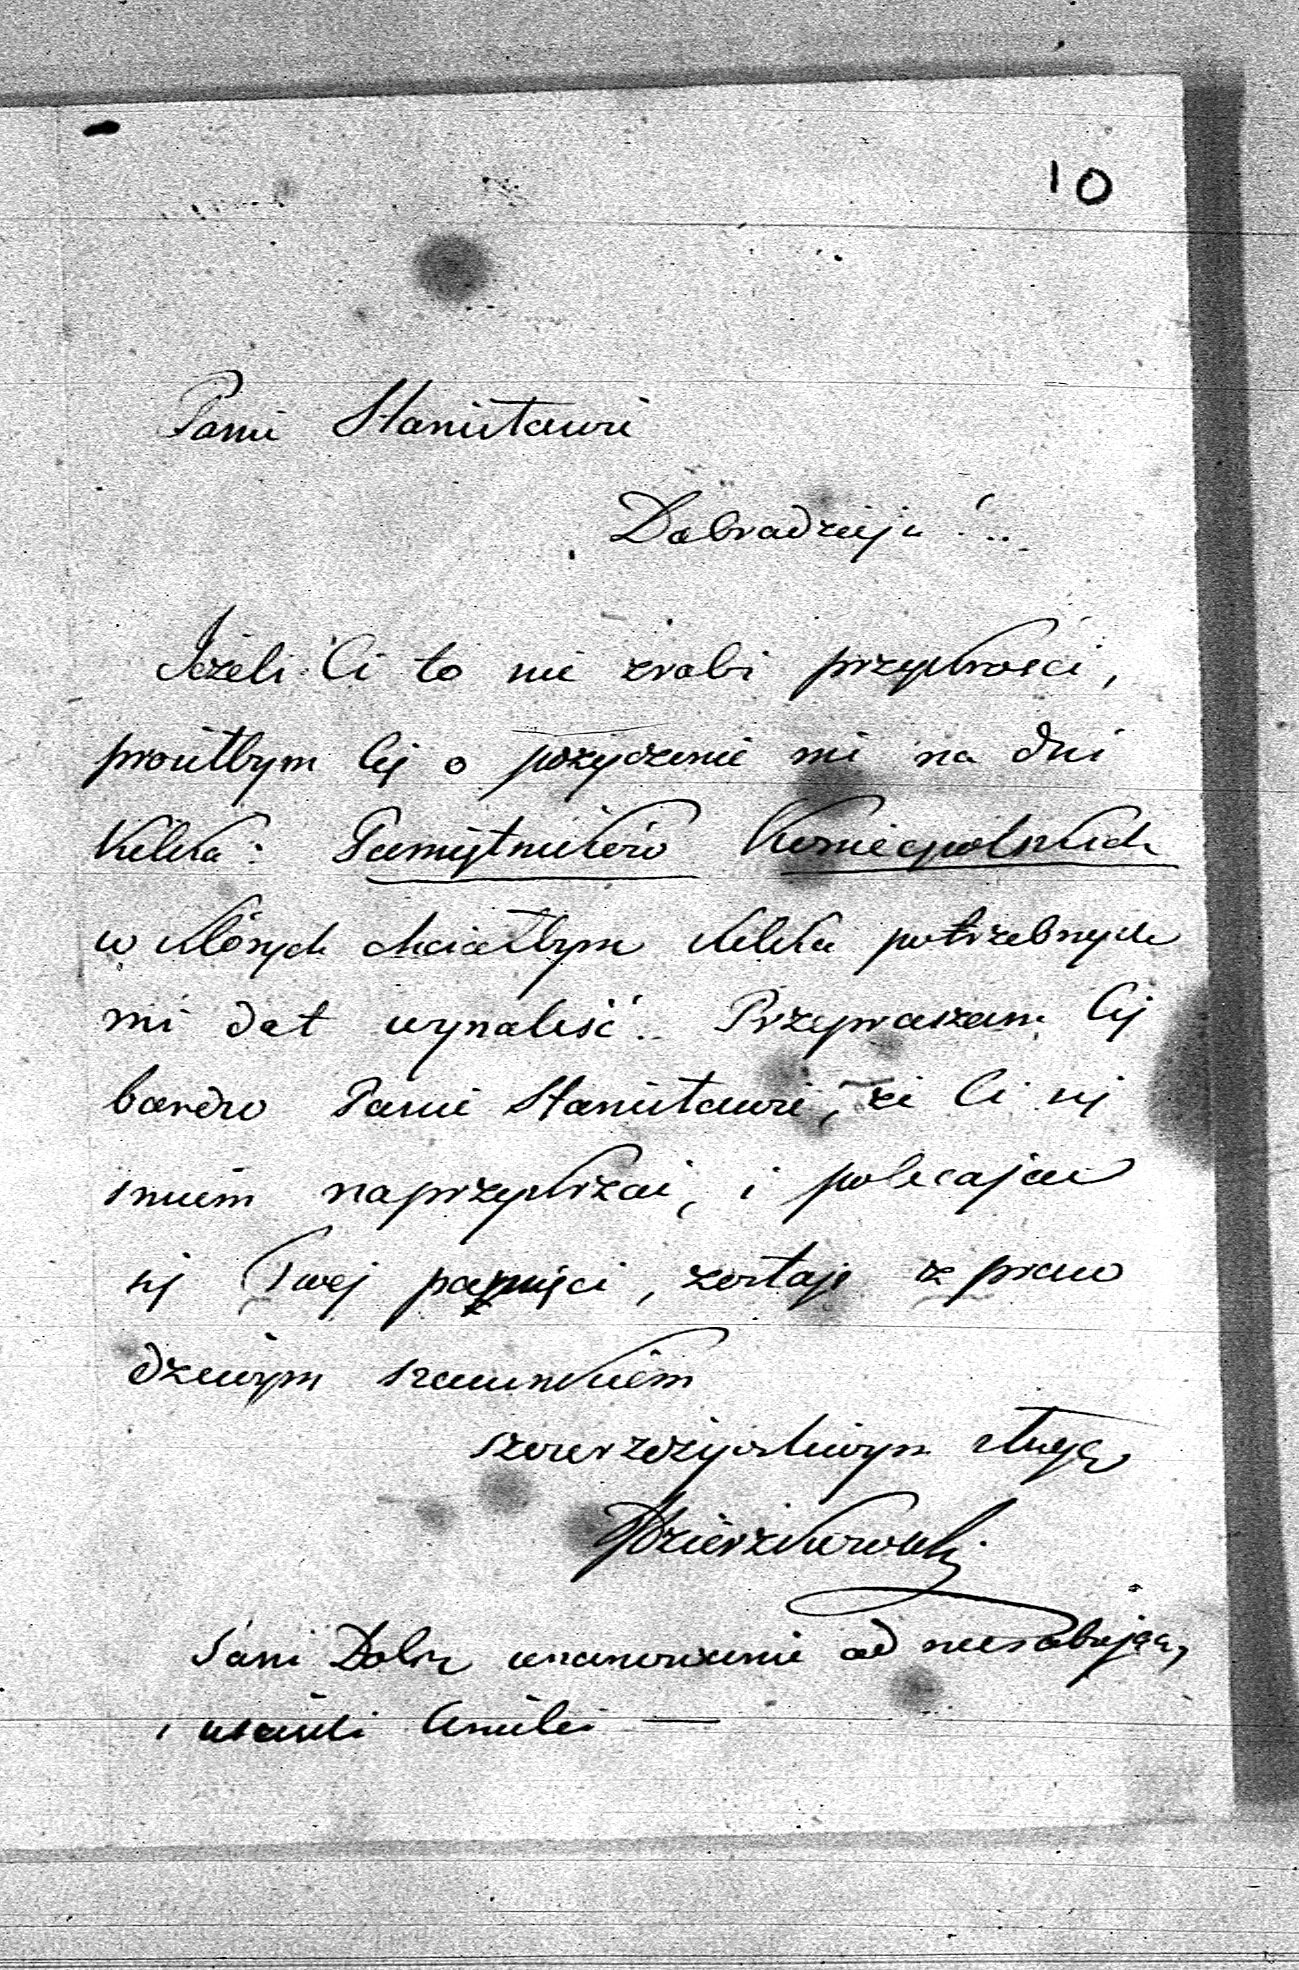 10
Panie Stanisławie
Dobrodzieju!..
Jeżeli Ci to nie zrobi przykrości,
prosiłbym Cię o pożyczenie mi na dni
kilka: Pamiętników Koniecpolskich
w których chciałbym kilka potrzebnych
mi dat wynaleść. Przepraszam Cię
bardzo Panie Stanisławie, że Ci się
smiem naprzykrzać, i polecając
się Twej pamięci, zostaję z praw
dziwym szacunkiem
szczerze życzliwym sługą
Dzierzkowski
Pani Dobr uszanowanie od
i